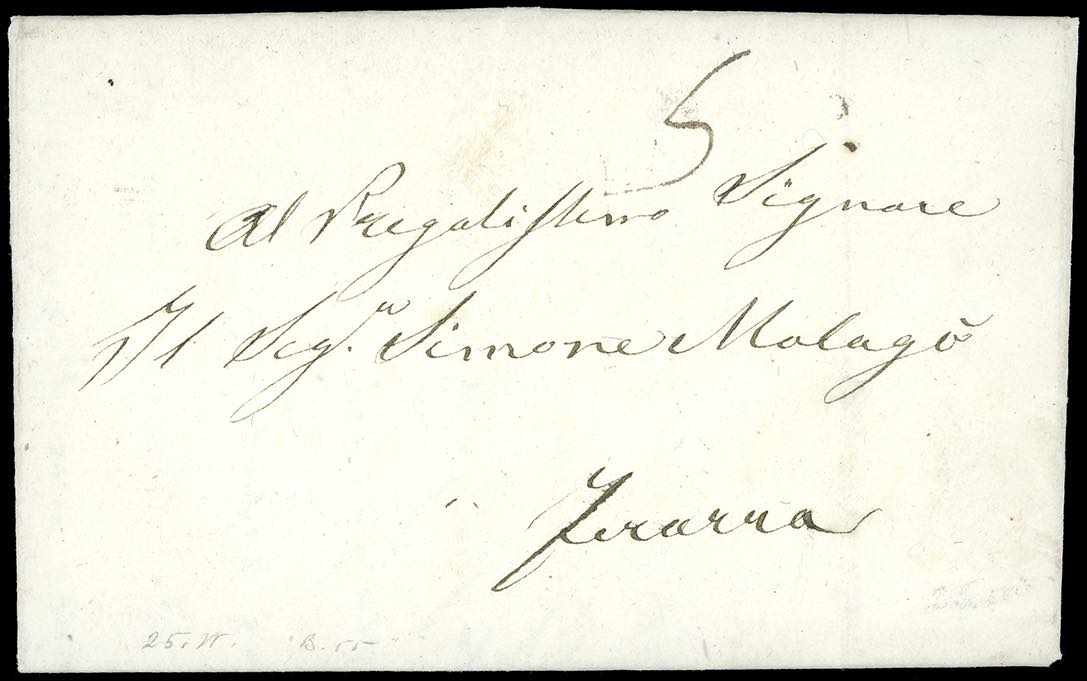 5
Al Pregatissimo Signore
Il Sig.r Simone Malagò
Ferarra
25. W. B.